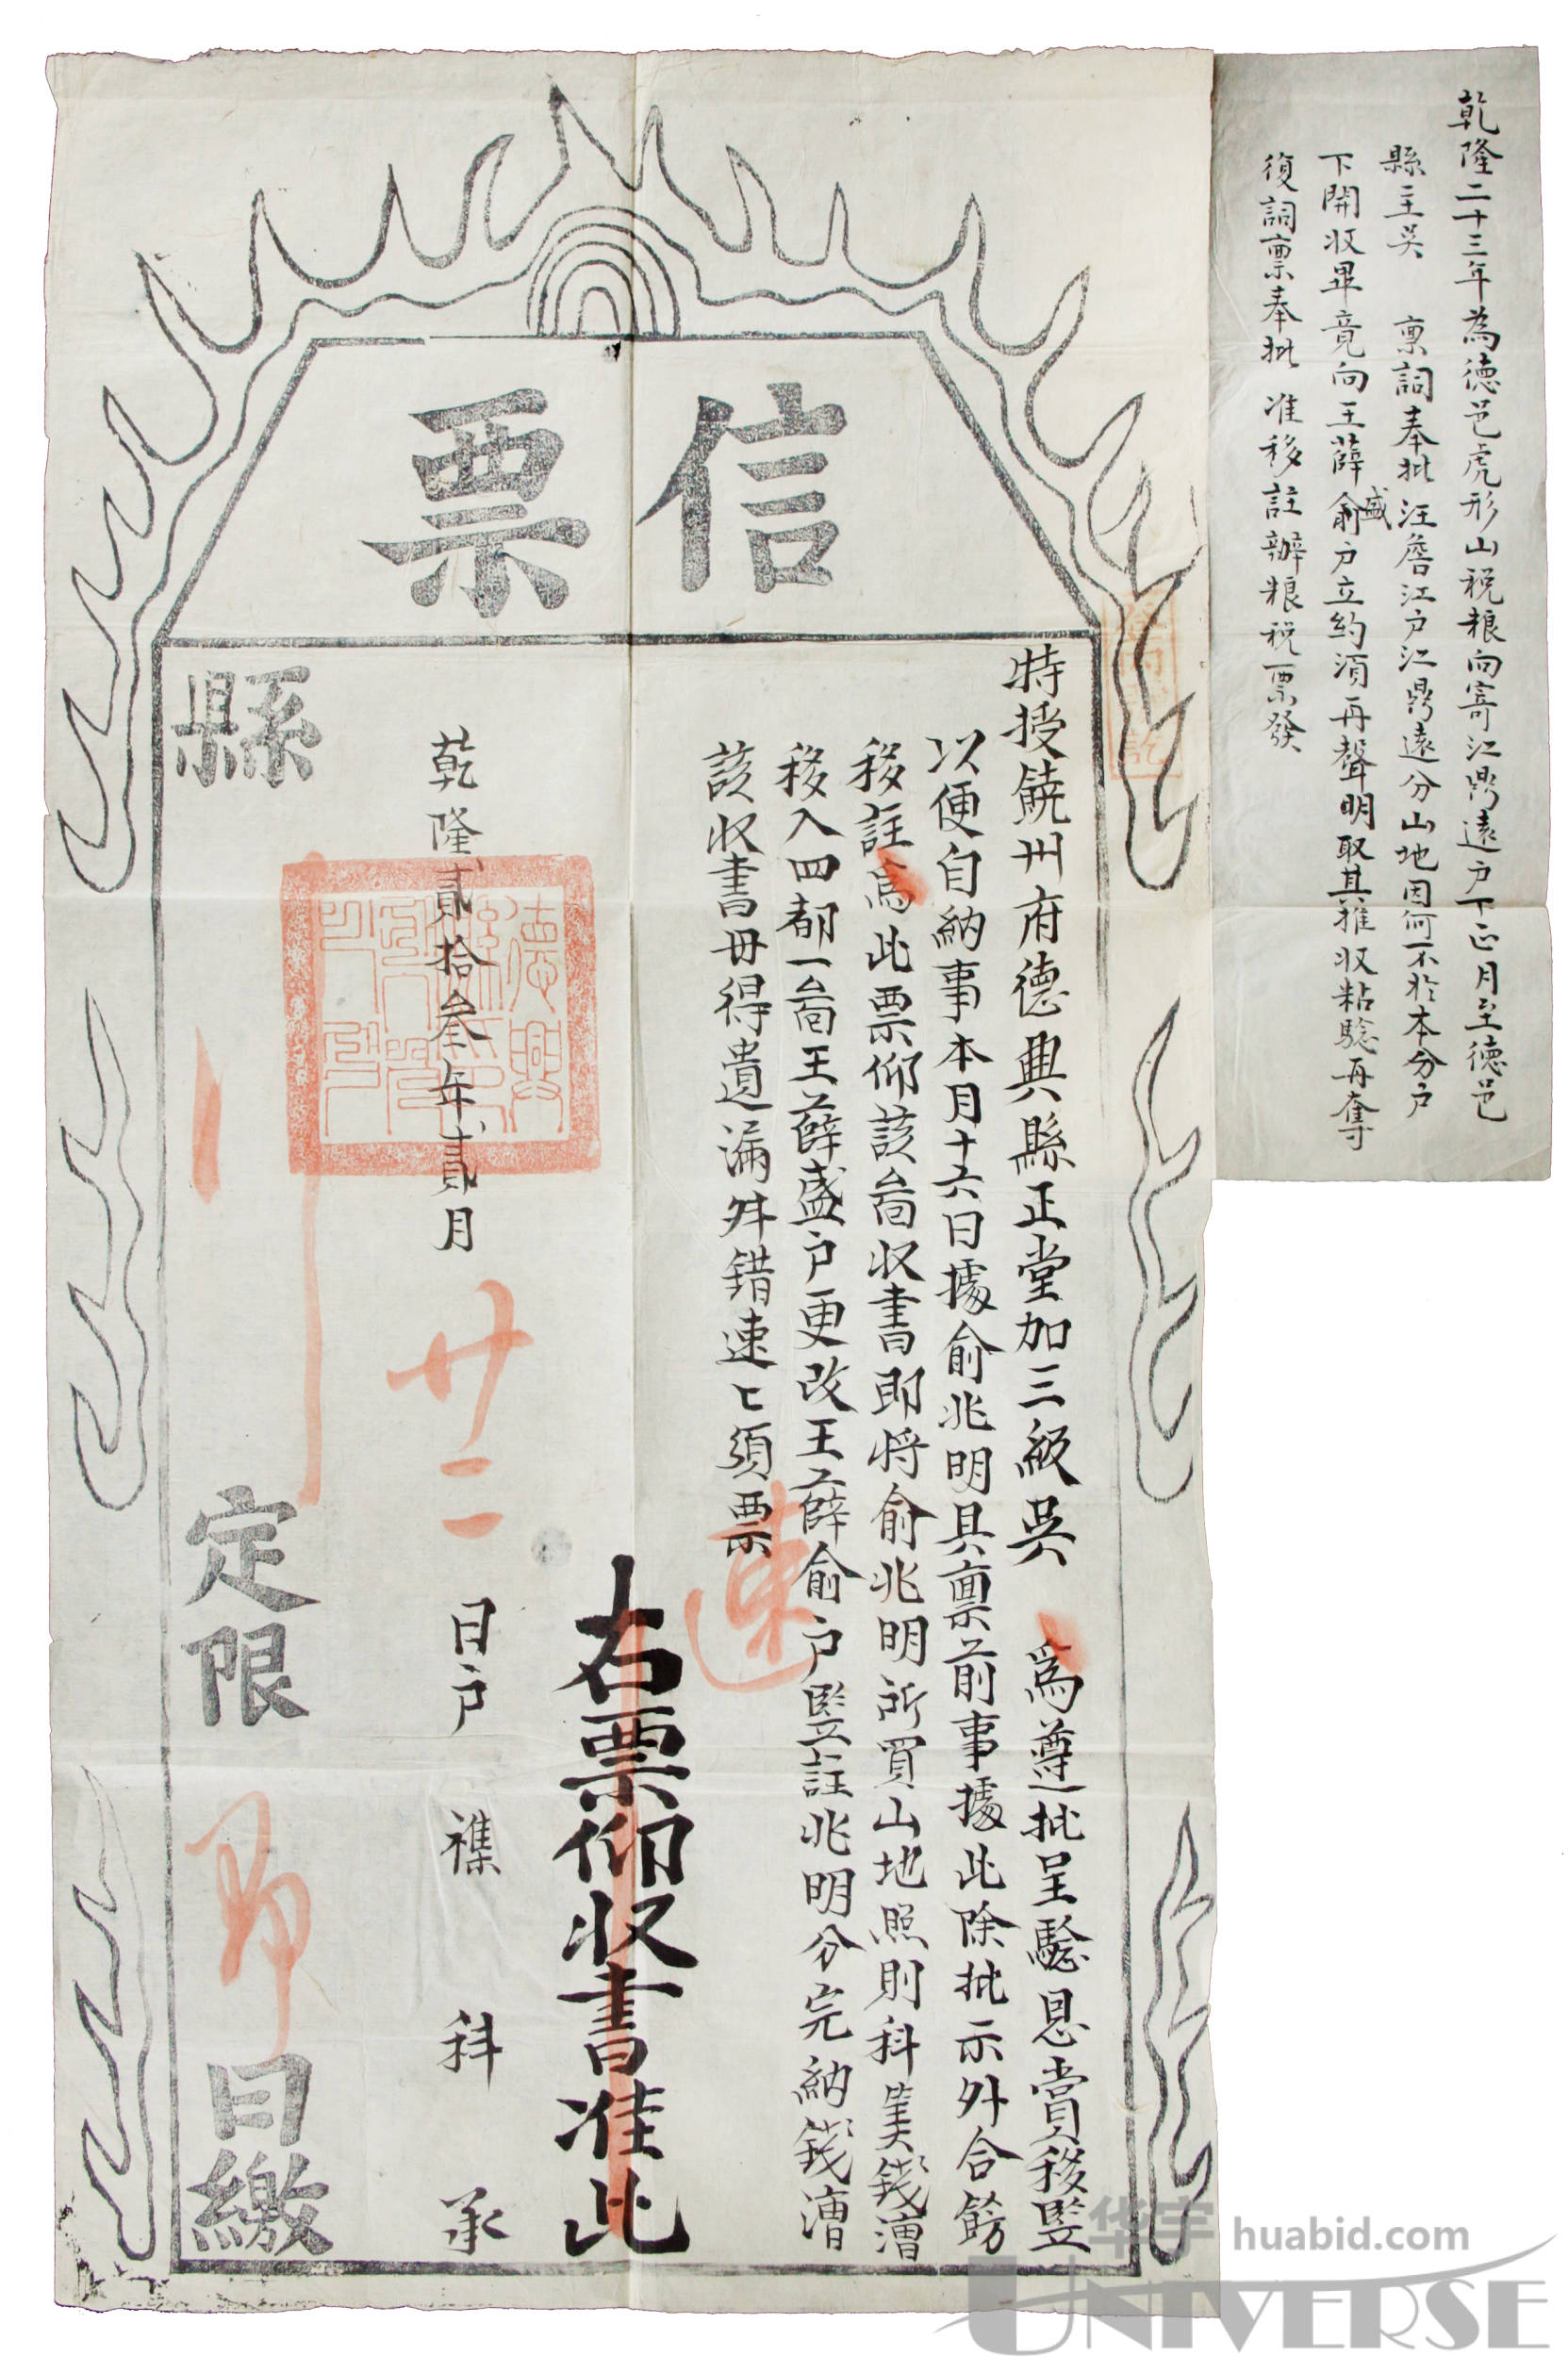 乾隆二十三年為德邑虎形山税粮向寄江鼎遠户下正月至德邑
縣主吴 稟詞奉批汪詹江户江鼎遠分山地因何不於本分户
下開收畢竟向王薛盛俞户立約須再聲明取其推收粘騐再奪
復詞稟奉批准移註辦粮税票發
信票
特授饒州府德興縣正堂加三級吴 為遵批呈騐恩賞移竪
以便自納事本月十六日據俞兆明具稟前事據此除批示外合飭
移註為此票仰該啚收書即將俞兆明所買山地照則科美錢漕
移入四都一啚王薛盛户更改王薛俞户竪註兆明分完納錢漕
該收書毋得遺漏舛錯速匕須票
速
右票仰收書准此
乾隆貳拾叁年貳月廿二日户 科 承
縣 定限 日繳
德興縣印
华宇 huabid.com
UNIVERSE